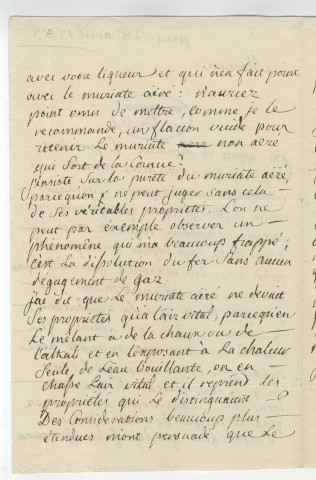 avec votre liqueur et qui n'en fait point
avec le muriate aëré : n'auriez
point omis de mettre, comme je le
recommande, un flacon vuide pour
retenir le muriate aeré non aeré
qui sort de la Cornue?
j'insiste sur la pureté du muriate aëré,
parcequ'on ne peut juger sans cela
de ses véritables proprietés. L'on ne
peut par exemple observer un
phénomène qui m'a beaucoups frappé ;
c'est la dissolution du fer sans aucun
dégagement de gaz
j'ai dit que le muriate aëré ne devait
ses proprietés qu'à l'air vital, parceq'uen
le mêlant a de la chaux ou de
l'alkali et en l'exposant à la chaleur
seule de l'eau bouillante, on en
chasse l'air vital et il reprend les
proprietés qui le distinguaient
Des considérations beaucoup plus
étendues m'ont persuadé que le